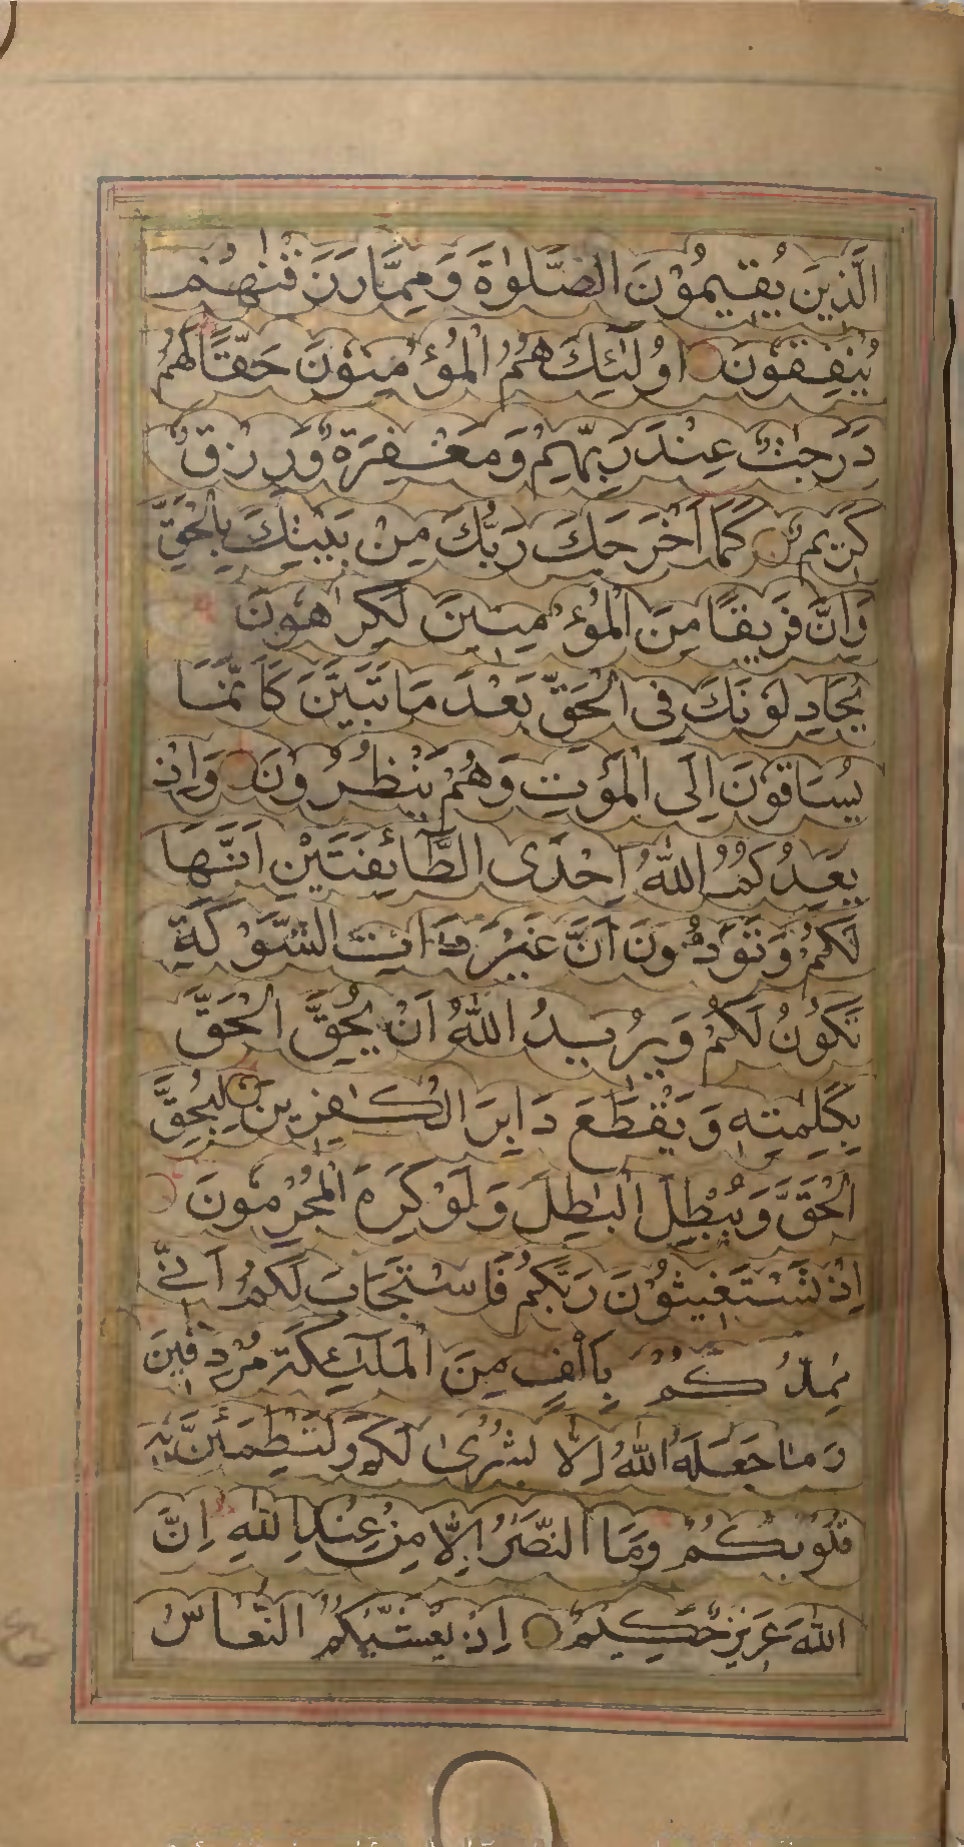 الَّذِينَ يُقِيمُوْنَ الصَّلٰوةَ وَمِمَّا رَزَقْنٰهُمْ
يُنْفِقُوْنَ اُولٰئِكَ هُمُ الْمُؤْمِنُوْنَ حَقًّا لَهُمْ
دَرَجٰتٌ عِنْدَ رَبِّهِمْ وَمَغْفِرَةٌ وَرِزْقٌ
كَرِيمٌ كَمَا اَخْرَجَكَ رَبُّكَ مِنْ بَيْتِكَ بِالْحَقِّ
وَاِنَّ فَرِيقًا مِنَ الْمُؤْمِنِينَ لَكٰرِهُونَ
يُجَادِلُوْنَكَ فِى الْحَقِّ بَعْدَ مَا تَبَيَّنَ كَاَنَّمَا
يُسَاقُوْنَ اِلَى الْمَوْتِ وَهُمْ يَنْظُرُونَ وَاِذْ
يَعِدُكُمُ اللّٰهُ اِحْدَى الطَّآئِفَتَيْنِ اَنَّهَا
لَكُمْ وَتَوَدُّونَ اَنَّ غَيْرَ ذَاتِ الشَّوْكَةِ
تَكُوْنُ لَكُمْ وَيُرِيدُ اللّٰهُ اَنْ يُحِقَّ الْحَقَّ
بِكَلِمٰتِهٖ وَيَقْطَعَ دَابِرَ الْكٰفِرِينَ لِيُحِقَّ
الْحَقَّ وَيُبْطِلَ الْبٰطِلَ وَلَوْ كَرِهَ الْمُجْرِمُونَ
اِذْ تَسْتَغِيثُوْنَ رَبَّكُمْ فَاسْتَجَابَ لَكُمْ اَنِّى
مُمِدُّكُمْ بِاَلْفٍ مِنَ الْمَلٰٓئِكَةِ مُرْدِفِينَ
وَمَا جَعَلَهُ اللّٰهُ اِلَّا بُشْرٰى لَكُمْ وَلِتَطْمَئِنَّ بِهٖ
قُلُوبُكُمْ وَمَا النَّصْرُ اِلَّا مِنْ عِنْدِ اللّٰهِ اِنَّ
اللّٰهَ عَزِيزٌ حَكِيمٌ اِذْ يُغَشِّيكُمُ النُّعَاسَ